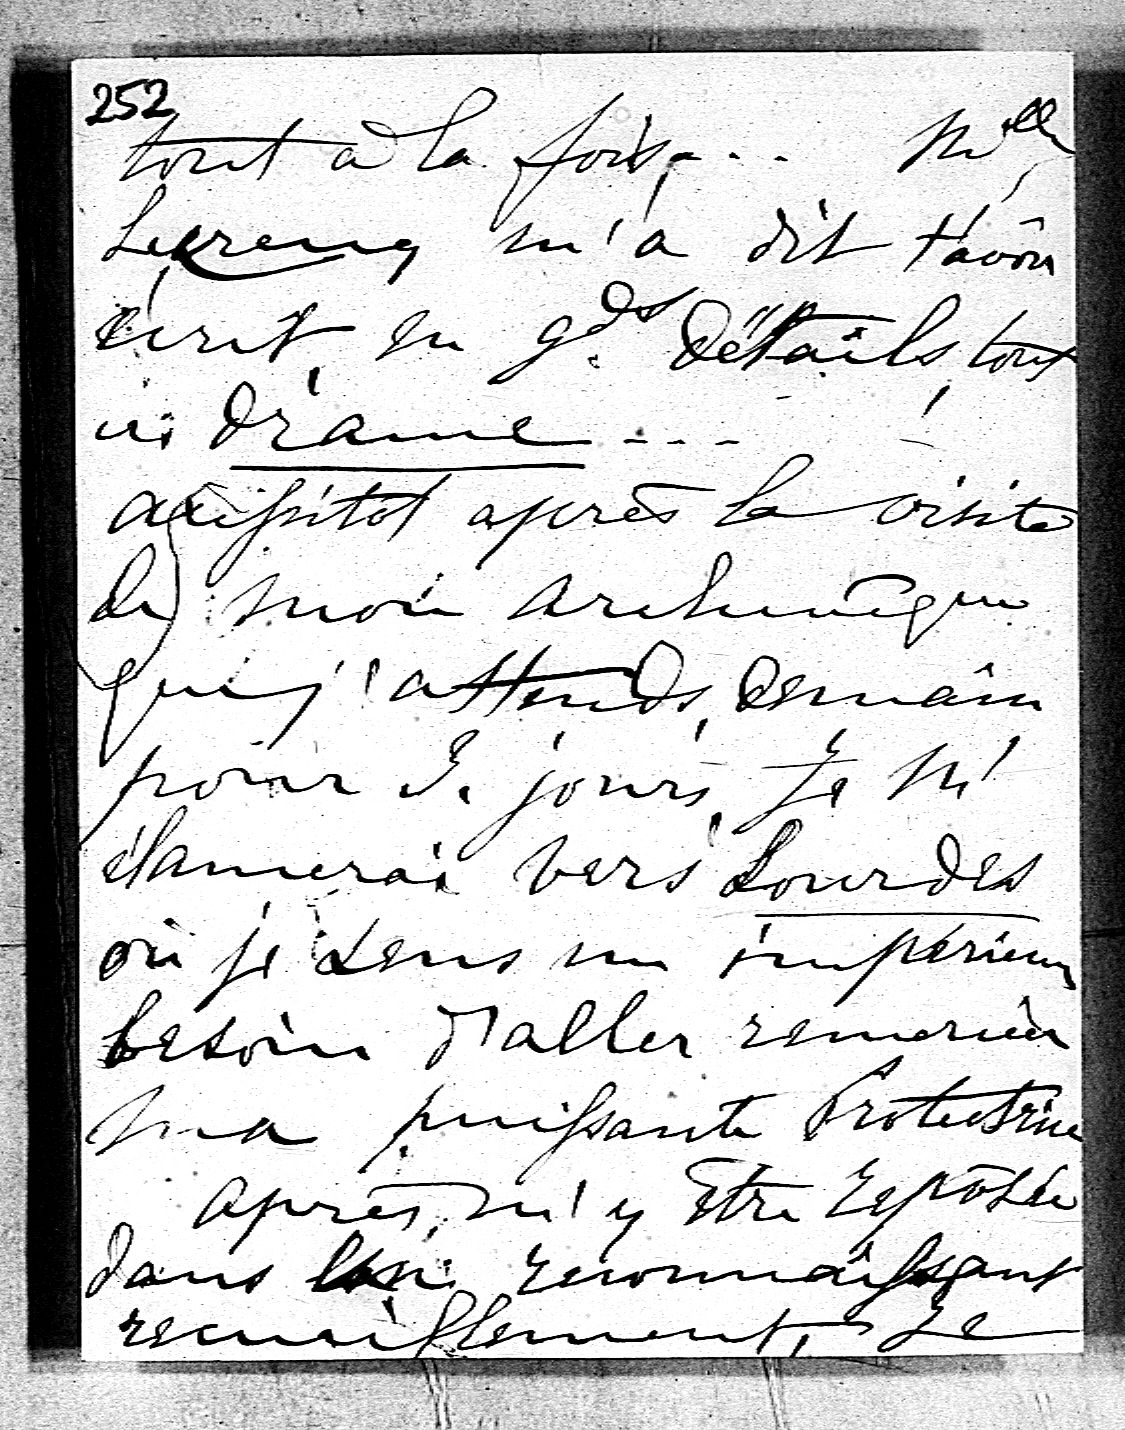 252
tout à la fois... Mlle
m'a dit t'avoir
écrit en gds détails tout
ce drame...
aussitôt après la visite
de mon archevêque
que j'attends demain
pour 3 jours, je m'
élancerai vers Lourdes
où je sens un impérieux
besoin d'aller remercier
ma puissante Protectrice
après m'y être reposée
dans un reconnaissant
recueillement, je